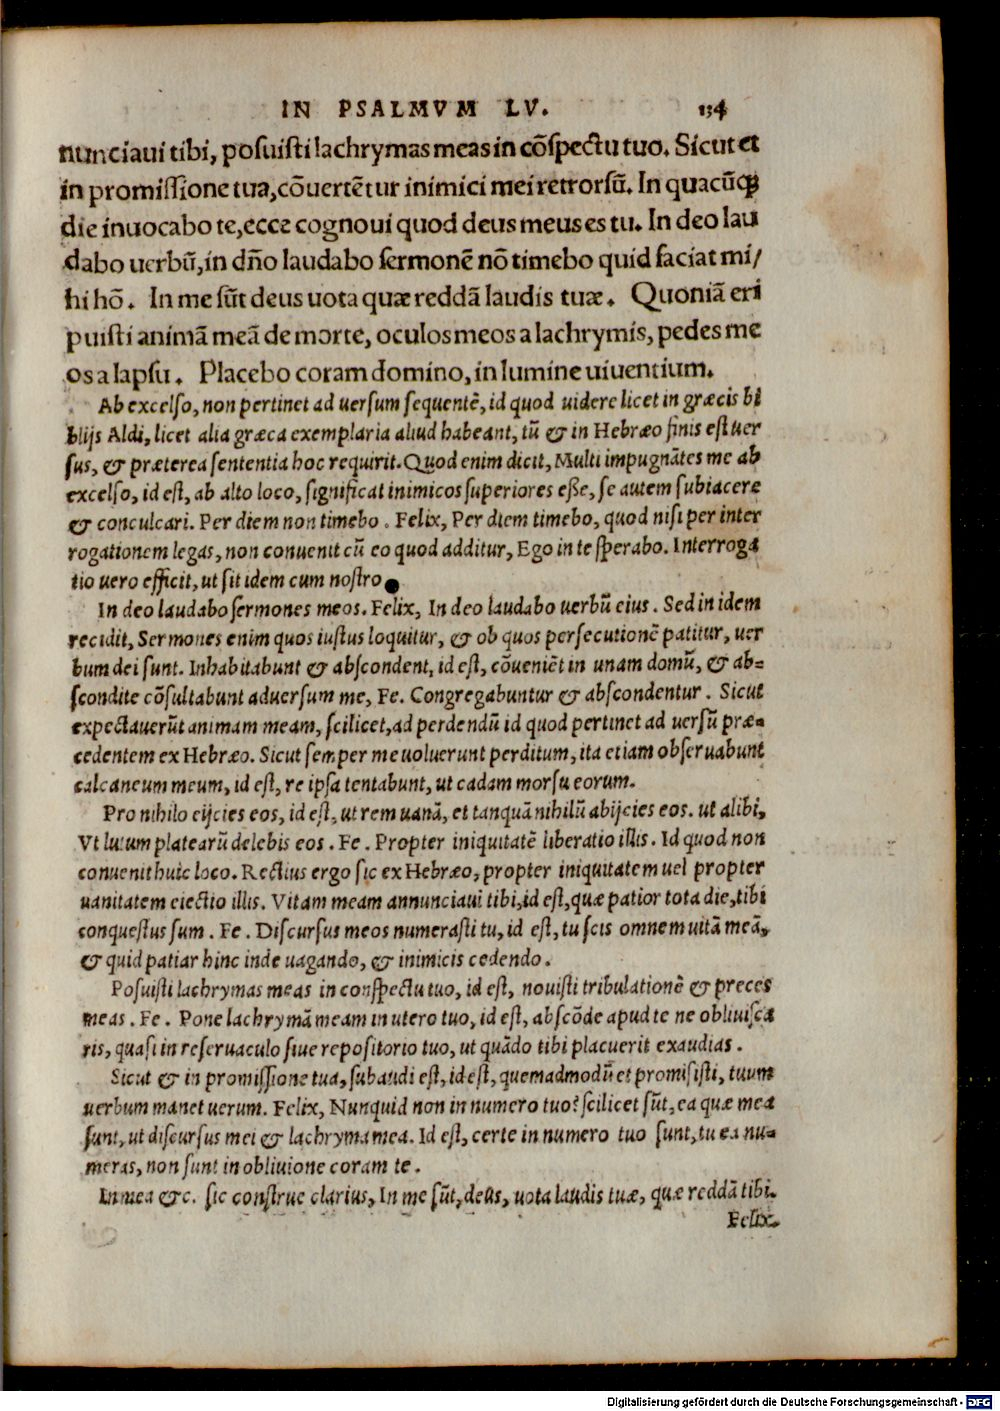 IN PSALMVM LV. 134
nunciaui tibi, posuisti lachrymas meas in cōspectu tuo. Sicut et
in promissione tua, cōuertētur inimici mei retrorsū. In quacūqꝫ
die inuocabo te, ecce cognoui quod deus meus es tu. In deo lau
dabo uerbū, in dño laudabo sermonē nō timebo quid faciat mi/
hi hō. In me sūt deus uota quæ reddā laudis tuæ. Quoniā eri
puisti animā meā de morte, oculos meos a lachrymis, pedes me
os a lapsu. Placebo coram domino, in lumine uiuentium.
Ab excelso, non pertinet ad uersum sequentē, id quod uidere licet in græcis bi
blijs Aldi, licet alia græca exemplaria aliud habeant, tū & in Hebræo finis est uer
sus, & præterea sententia hoc requirit. Quod enim dicit, Multi impugnātes me ab
excelso, id est, ab alto loco, significat inimicos superiores esse, se autem subiacere
& conculcari. Per diem non timebo. Felix, Per diem timebo, quod nisi per inter
rogationem legas, non conuenit cū eo quod additur, Ego in te sperabo. Interroga
tio uero efficit, ut sit idem cum nostro.
In deo laudabo sermones meos. Felix, In deo laudabo uerbū eius. Sed in idem
recidit, Sermones enim quos iustus loquitur, & ob quos persecutionē patitur, uer
bum dei sunt. Inhabitabunt & abscondent, id est, cōueniēt in unam domū, & ab=
scondite cōsultabunt aduersum me, Fe. Congregabuntur & abscondentur. Sicut
expectauerūt animam meam, scilicet, ad perdendū id quod pertinet ad uersū præ=
cedentem ex Hebræo. Sicut semper me uoluerunt perditum, ita etiam obseruabunt
calcaneum meum, id est, re ipsa tentabunt, ut cadam morsu eorum.
Pro nihilo eijcies eos, id est, ut rem uanā, et tanquā nihilū abijcies eos. ut alibi,
Vt lutum platearū delebis eos. Fe. Propter iniquitatē liberatio illis. Id quod non
conuenit huic loco. Rectius ergo sic ex Hebræo, propter iniquitatem uel propter
uanitatem eiectio illis. Vitam meam annunciaui tibi, id est, quæ patior tota die, tibi
conquestus sum. Fe. Discursus meos numerasti tu, id est, tu scis omnem uitā meā,
& quid patiar hinc inde uagando, & inimicis cedendo.
Posuisti lachrymas meas in conspectu tuo, id est, nouisti tribulationē & preces
meas. Fe. Pone lachrymā meam in utero tuo, id est, abscōde apud te ne obliuisca
ris, quasi in reseruaculo siue repositorio tuo, ut quādo tibi placuerit exaudias.
Sicut & in promissione tua, subaudi est, id est, quemadmodū et promisisti, tuum
uerbum manet uerum. Felix, Nunquid non in numero tuo? scilicet sūt, ea quæ mea
sunt, ut discursus mei & lachryma mea. Id est, certe in numero tuo sunt, tu ea nu=
meras, non sunt in obliuione coram te.
In mea &c. sic construe clarius, In me sūt, deus, uota laudis tuæ, quæ reddā tibi.
Felix.
Digitalisierung gefördert durch die Deutsche Forschungsgemeinschaft - DFG